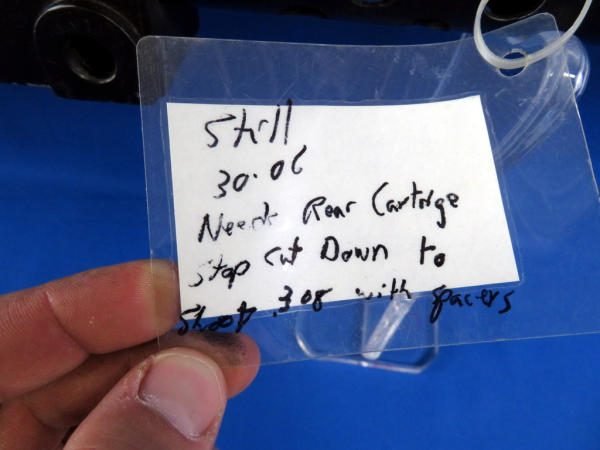 Still
30.06
Needs Rear Cartrige
Stop cut Down to
Shoot .308 with spacers